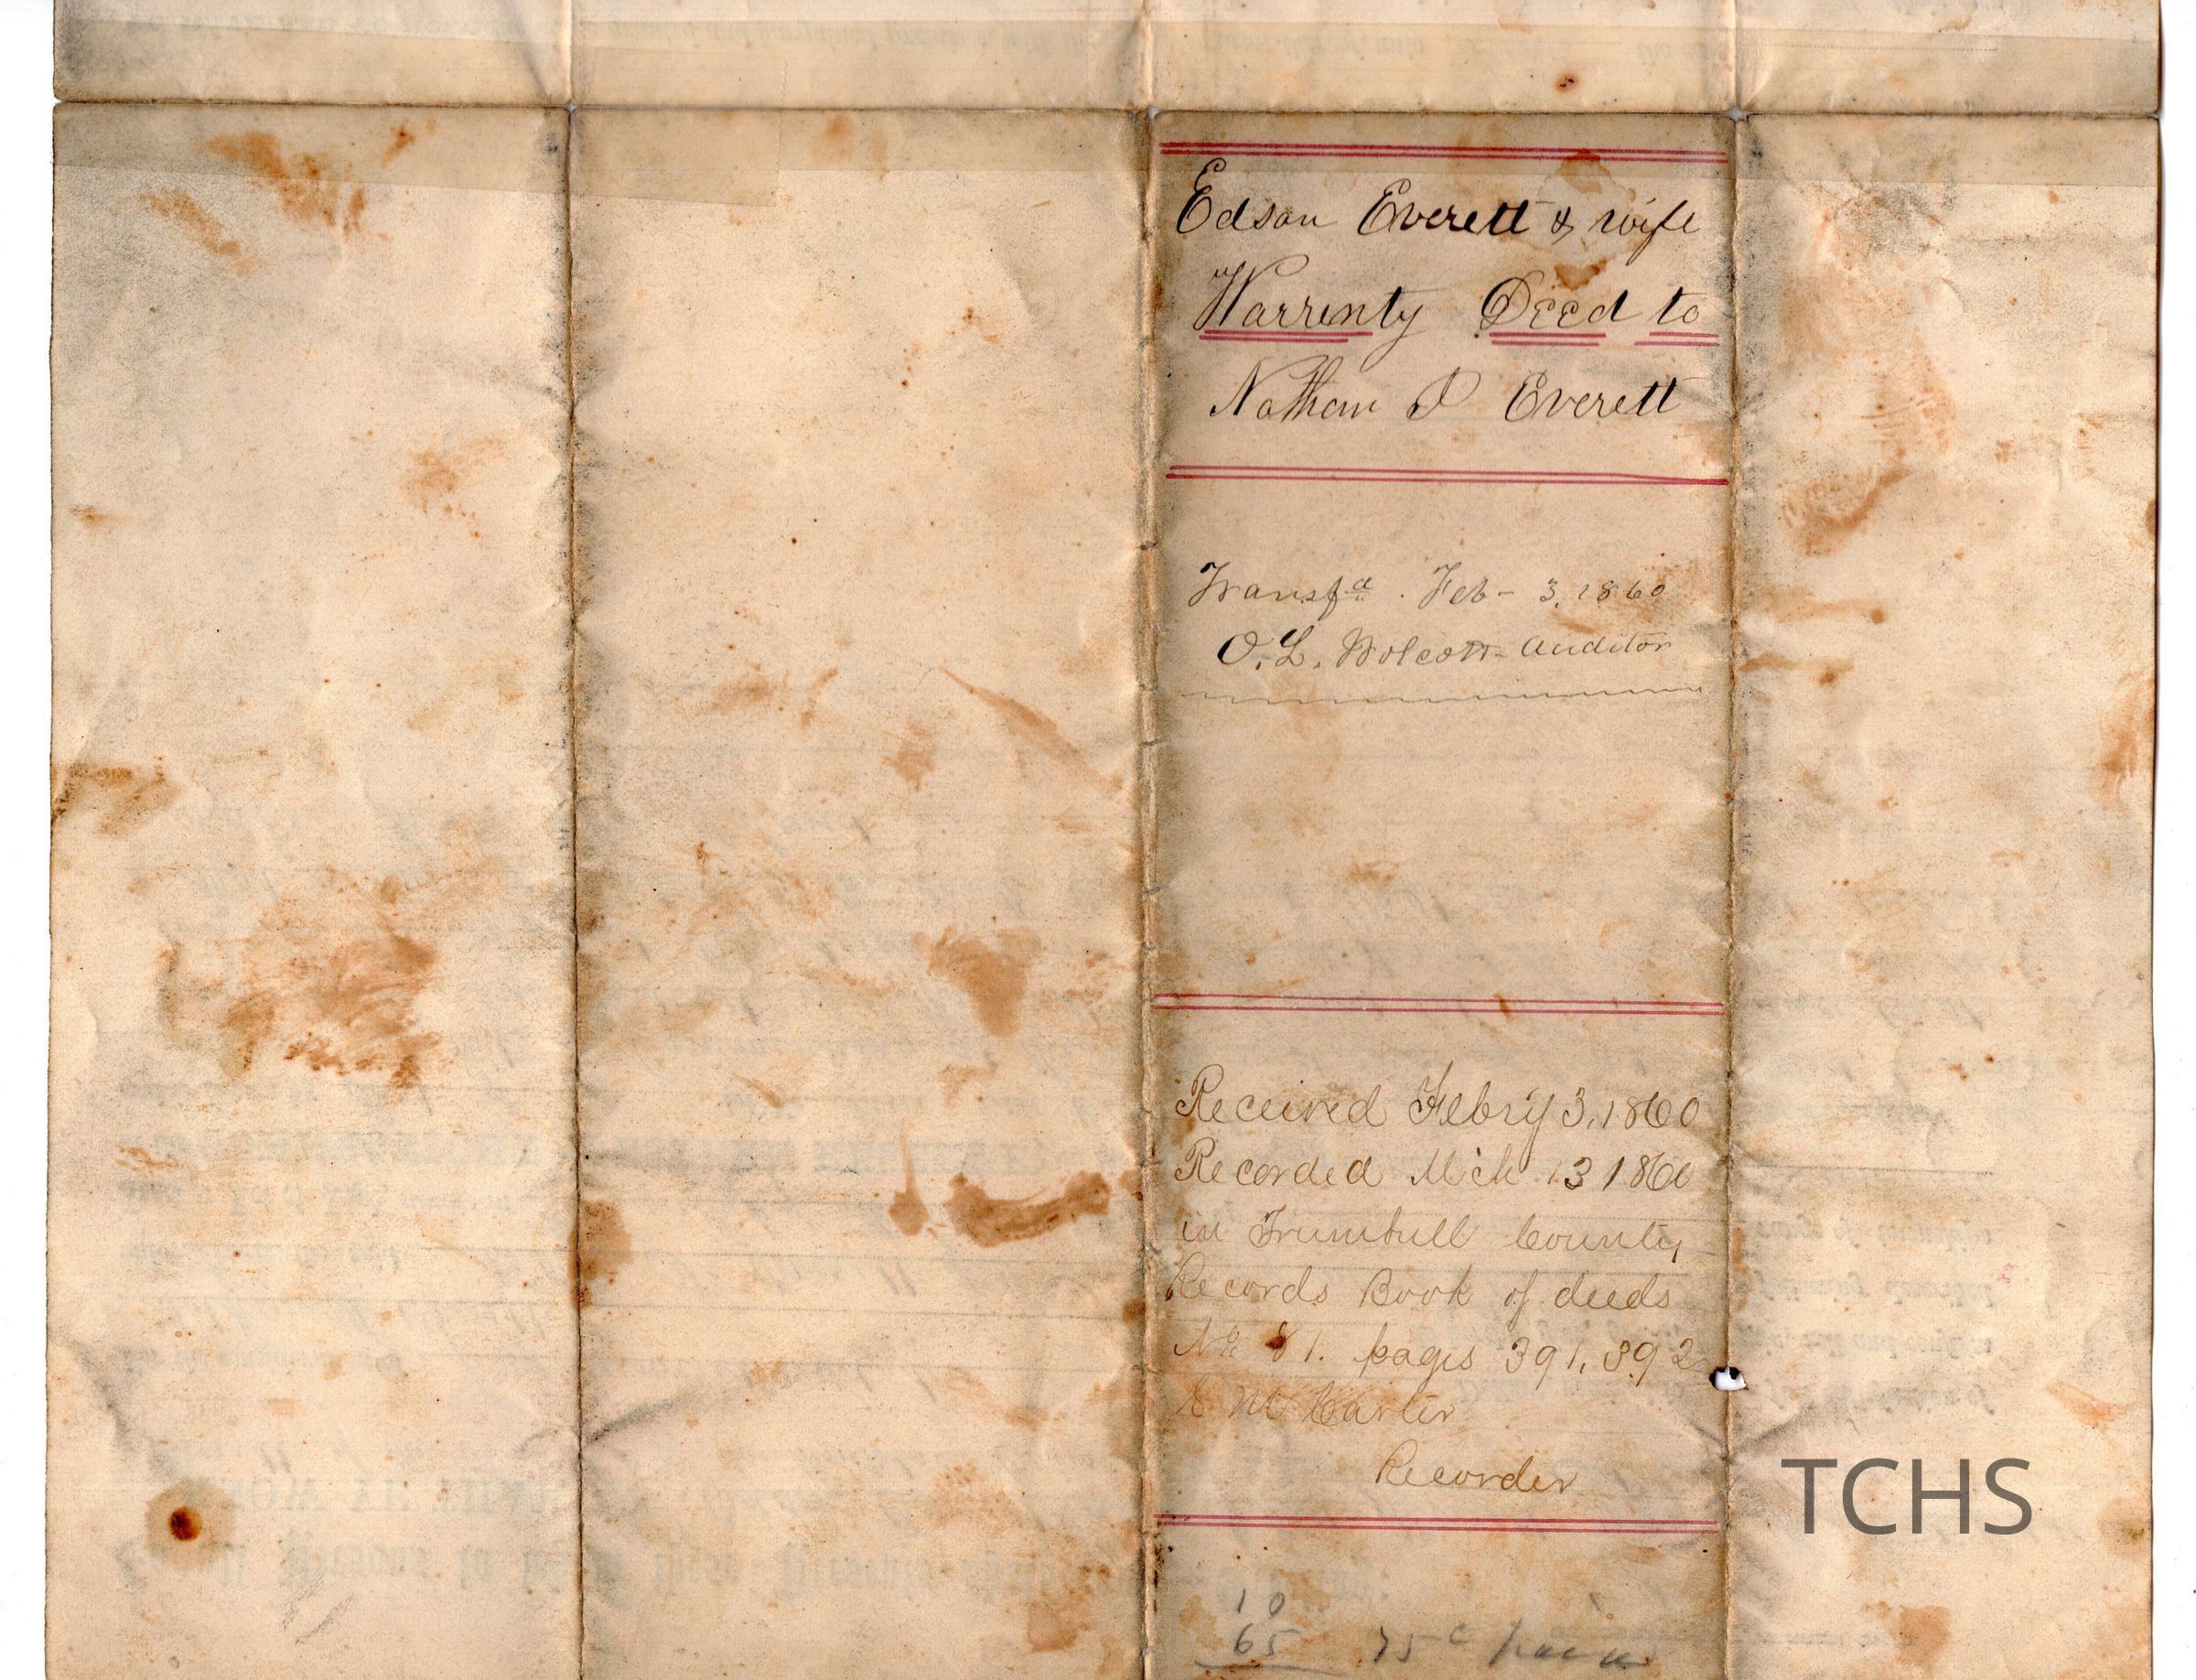 Edson Everett & wife
Warrenty Deed to
Nathan P Everett
Transfd. Feb - 3, 1860
O. L. Wolcott - Auditor
Received Febry 3, 1860
Recorded Mch 13 1860
in Trumbull County
Records Book of deeds
No 81. pages 391, 392
Carter
Recorder
TCHS
10
65 75c